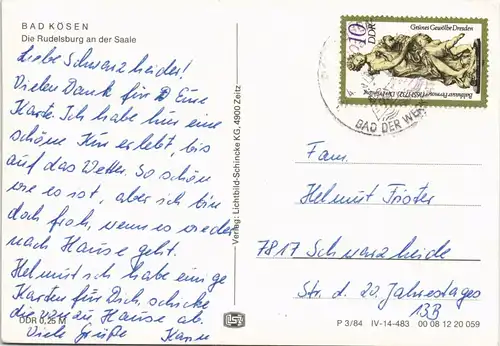 BAD KÖSEN
Die Rudelsburg an der Saale
Liebe Schwarzheider!
Vielen Dank für Eure
Karte. Ich habe hier eine
schöne Kur erlebt, bis
auf das Wetter. So schön
wie es ist, aber ich bin
doch froh, wenn es wieder
nach Hause geht.
Helmut ich habe einige
Karten für Dich, schicke
die von zu Hause ab.
Viele Grüße
DDR 0,25 M
Verlag: Lichtbild-Schincke KG, 4900 Zeitz
10
DDR
Grünes Gewölbe Dresden
BAD DER WE
Fam.
Helmut
7817 Schwarzheide
Str. d. 20. Jahrestages
13B
P 3/84 IV-14-483 00 08 12 20 059